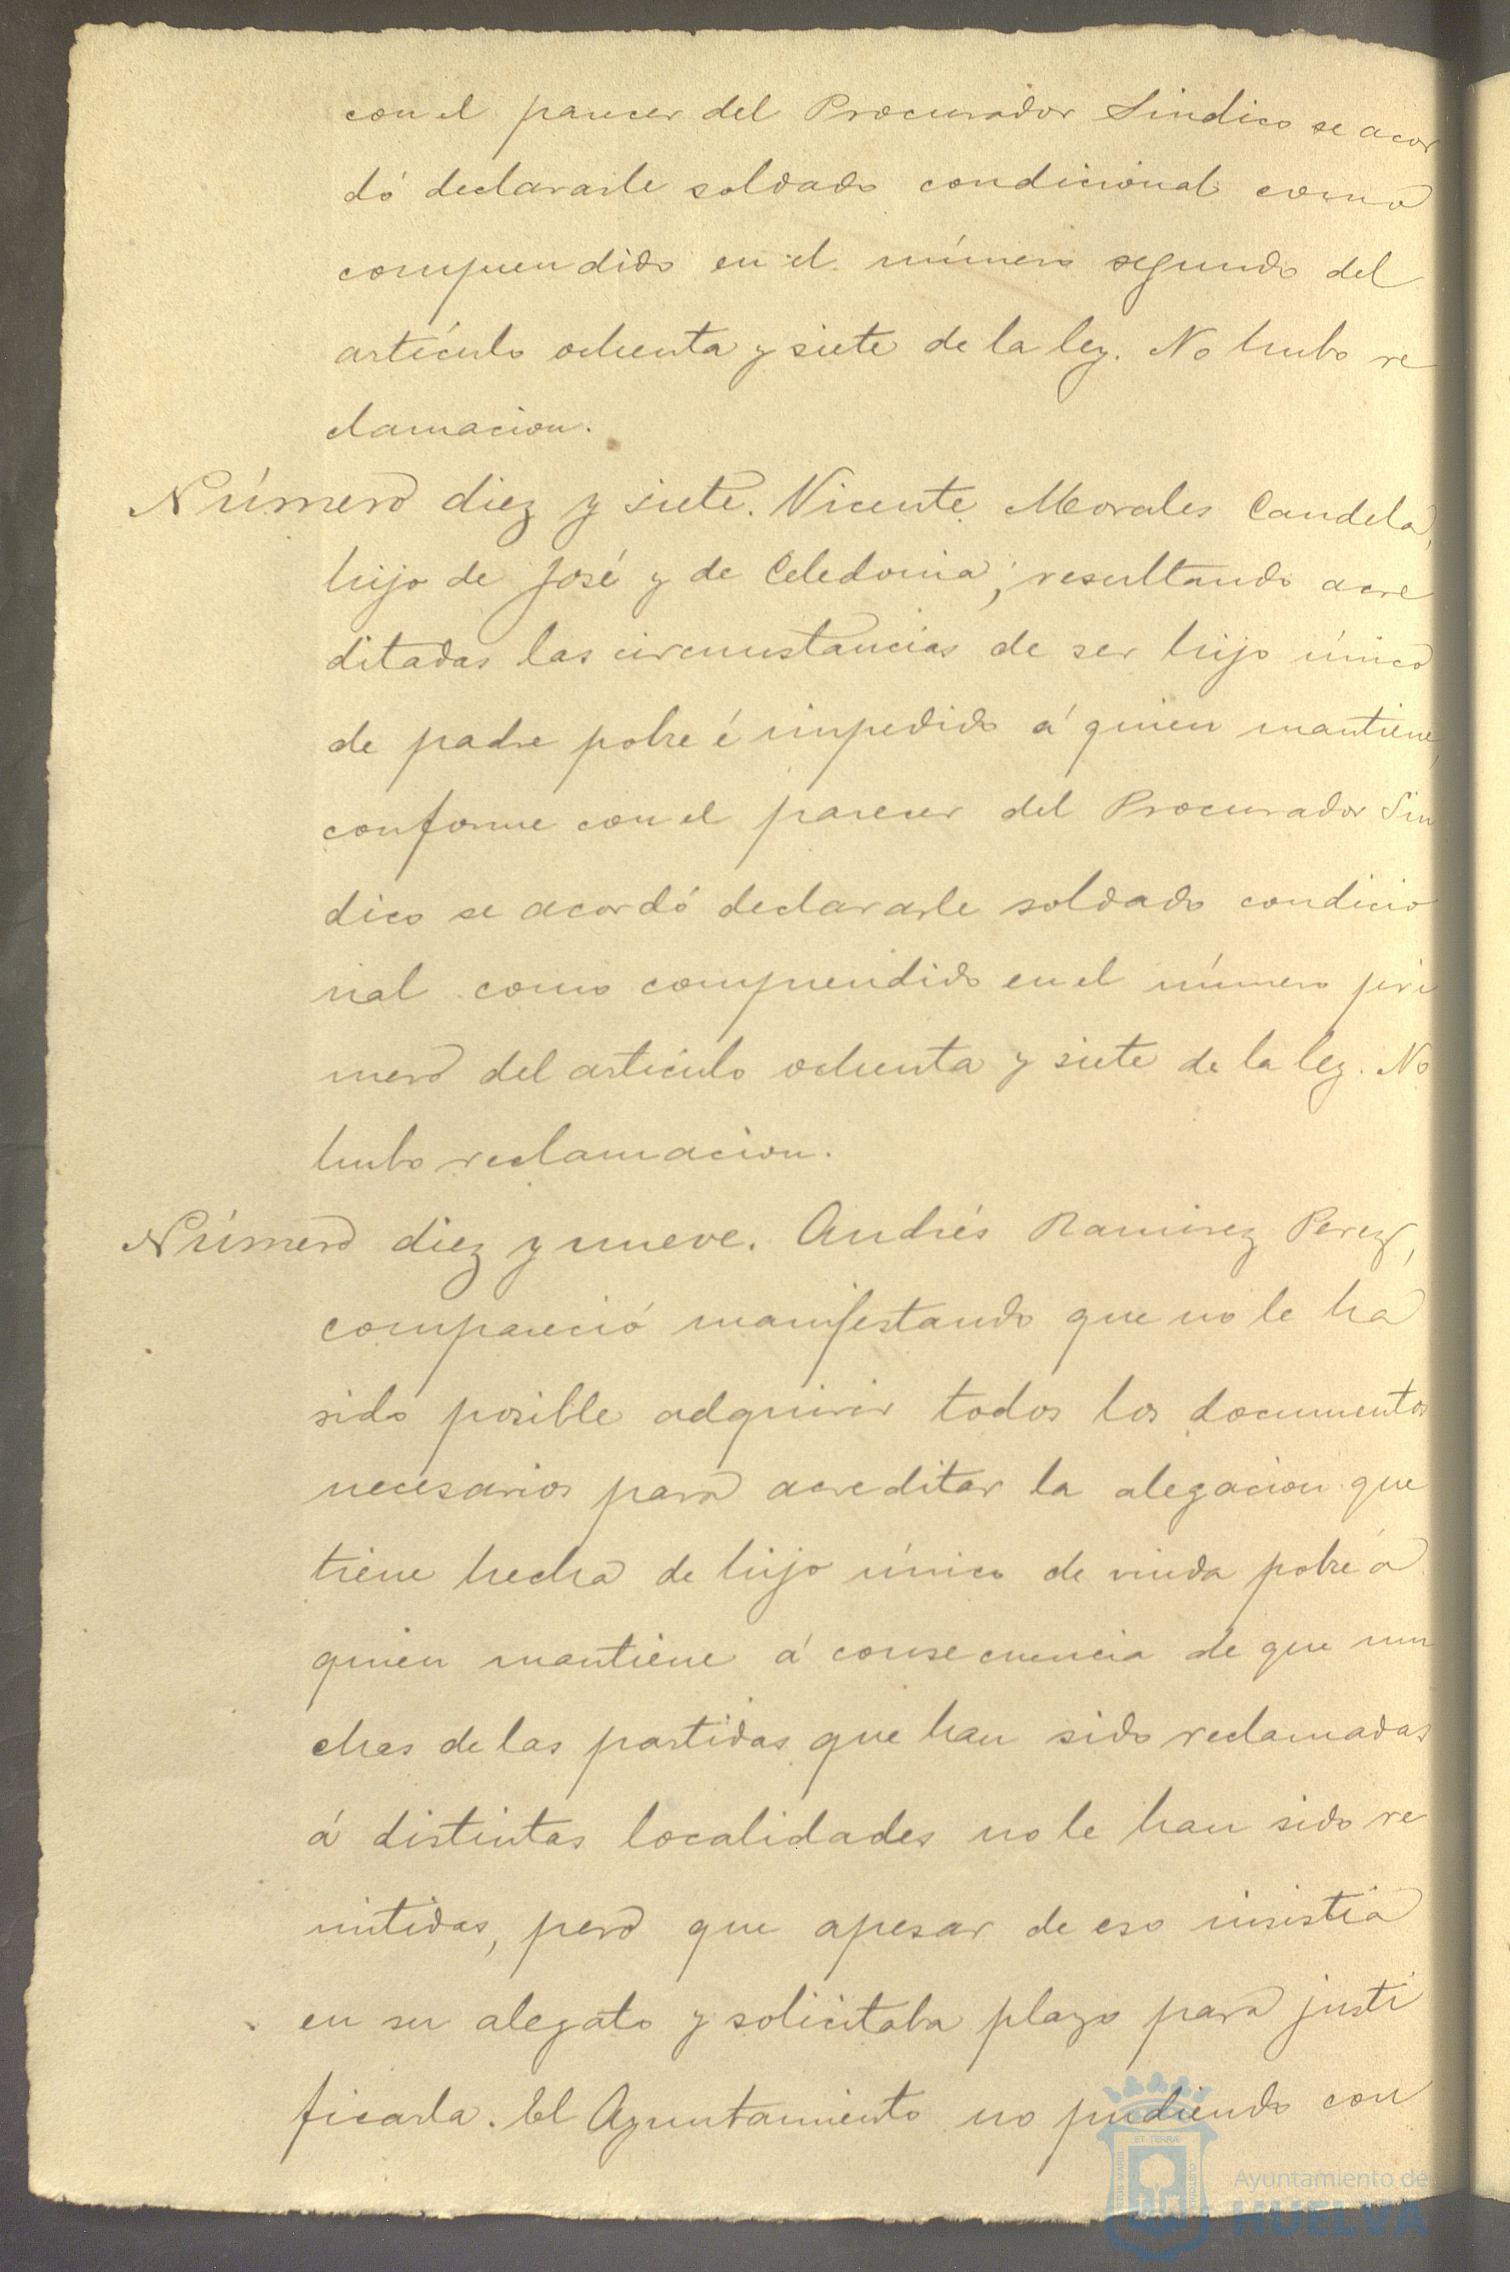 con el parecer del Procurador Sindico se acor
dó declararle soldado condicional como
comprendido en el número segundo del
artículo ochenta y siete de la ley. No hubo re
clamacion.
Número diez y siete. Vicente Morales Candela,
hijo de José y de Celedonia; resultando acre
ditadas las circunstancias de ser hijo único
de padre pobre é impedido á quien mantiene,
conforme con el parecer del Procurador Sin
dico se acordó declararle soldado condicio
nal como comprendido en el número pri
mero del artículo ochenta y siete de la ley. No
hubo reclamacion.
Número diez y nueve. Andrés Ramirez Perez,
compareció manifestando que no le ha
sido posible adquirir todos los documentos
necesarios para acreditar la alegacion que
tiene hecha de hijo único de viuda pobre á
quien mantiene á consecuencia de que mu
chas de las partidas que han sido reclamadas
á distintas localidades no le han sido re
mitidas, pero que apesar de eso insistia
en su alegato y solicitaba plazo para justi
ficarla. El Ayuntamiento no pudiendo con
Ayuntamiento de
HUELVA